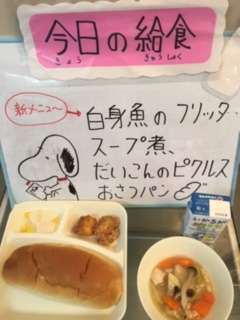 今日の給食
きょう きゅうしょく
新メニュー
白身魚のフリッター
スープ煮、
だいこんのピクルス
おさつパン